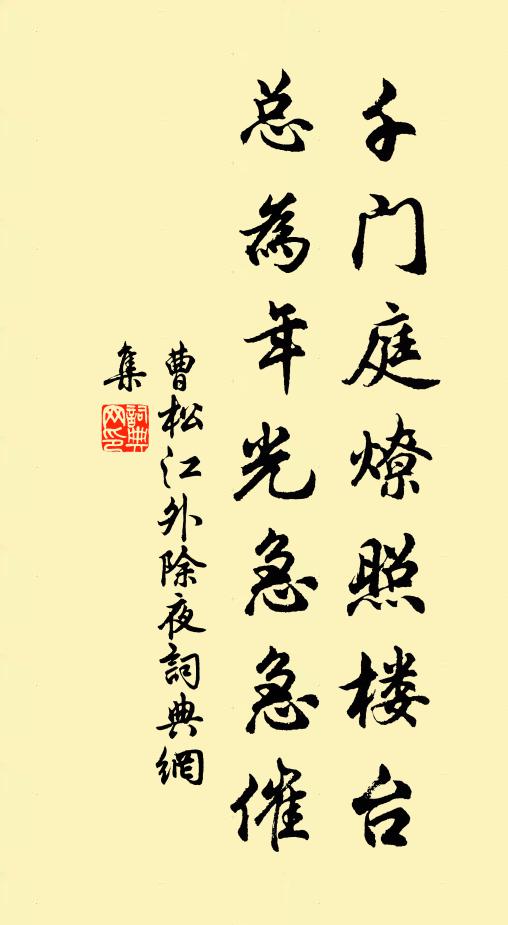 千门庭燎照楼台
总為年光急急催
曹松江外除夜詞典網
集
詞典
网印